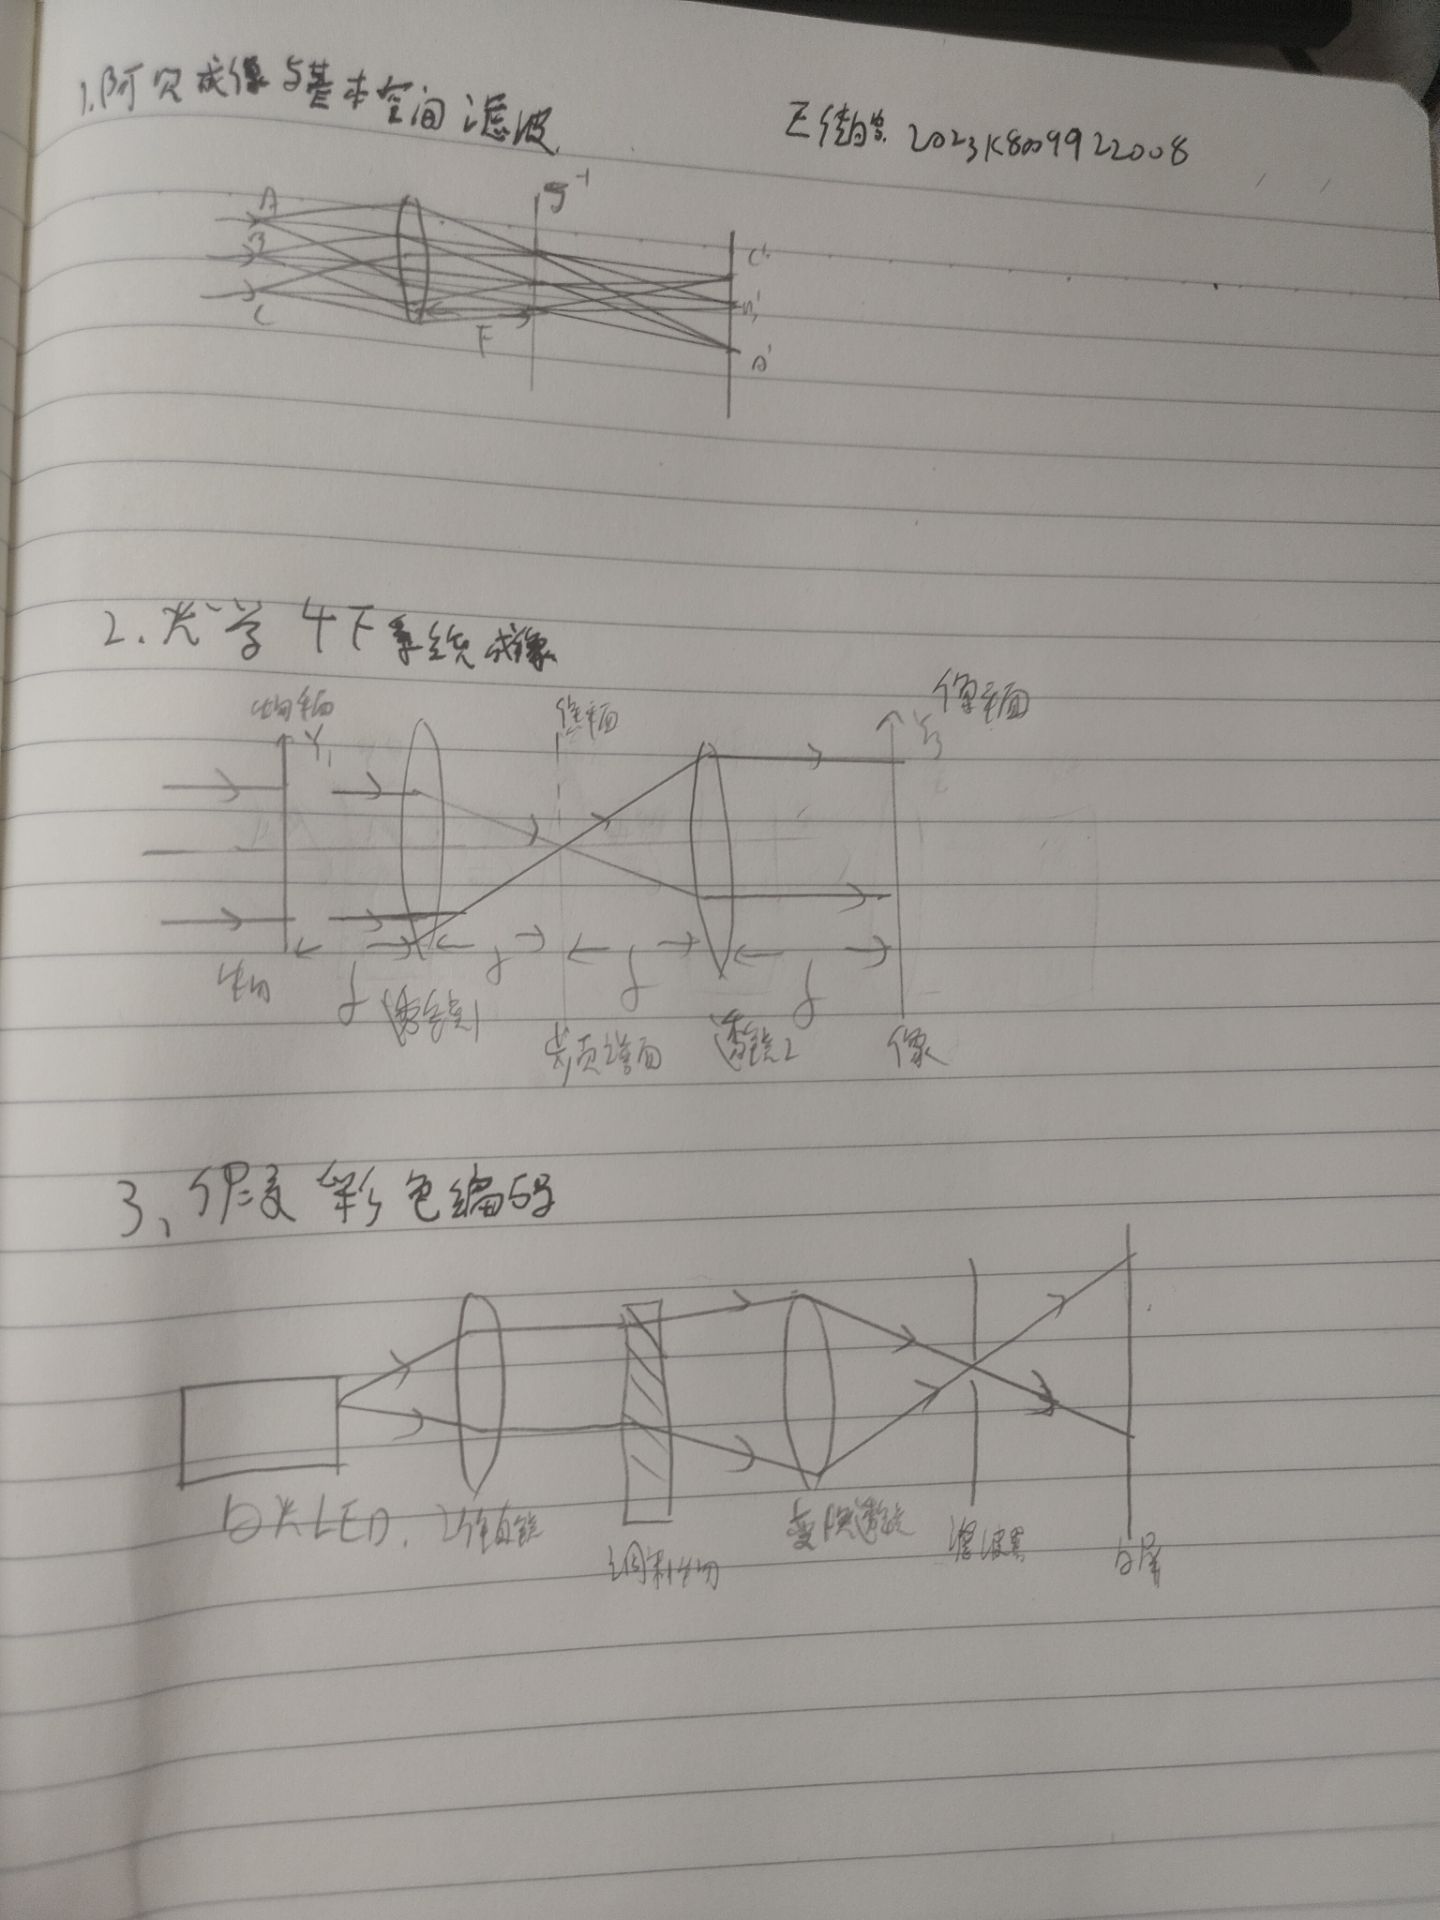 1.阿贝成像与基本空间滤波
2023K8009922008
A
B
C
F
C'
B'
A'
2.光学4F系统成像
物平面
Y₁
像平面
Y₃
物
f
f
f
f
透镜1
频谱面
透镜2
像
3、假彩色编码
白光LED.
准直镜
调制物
变换透镜
滤波器
白屏